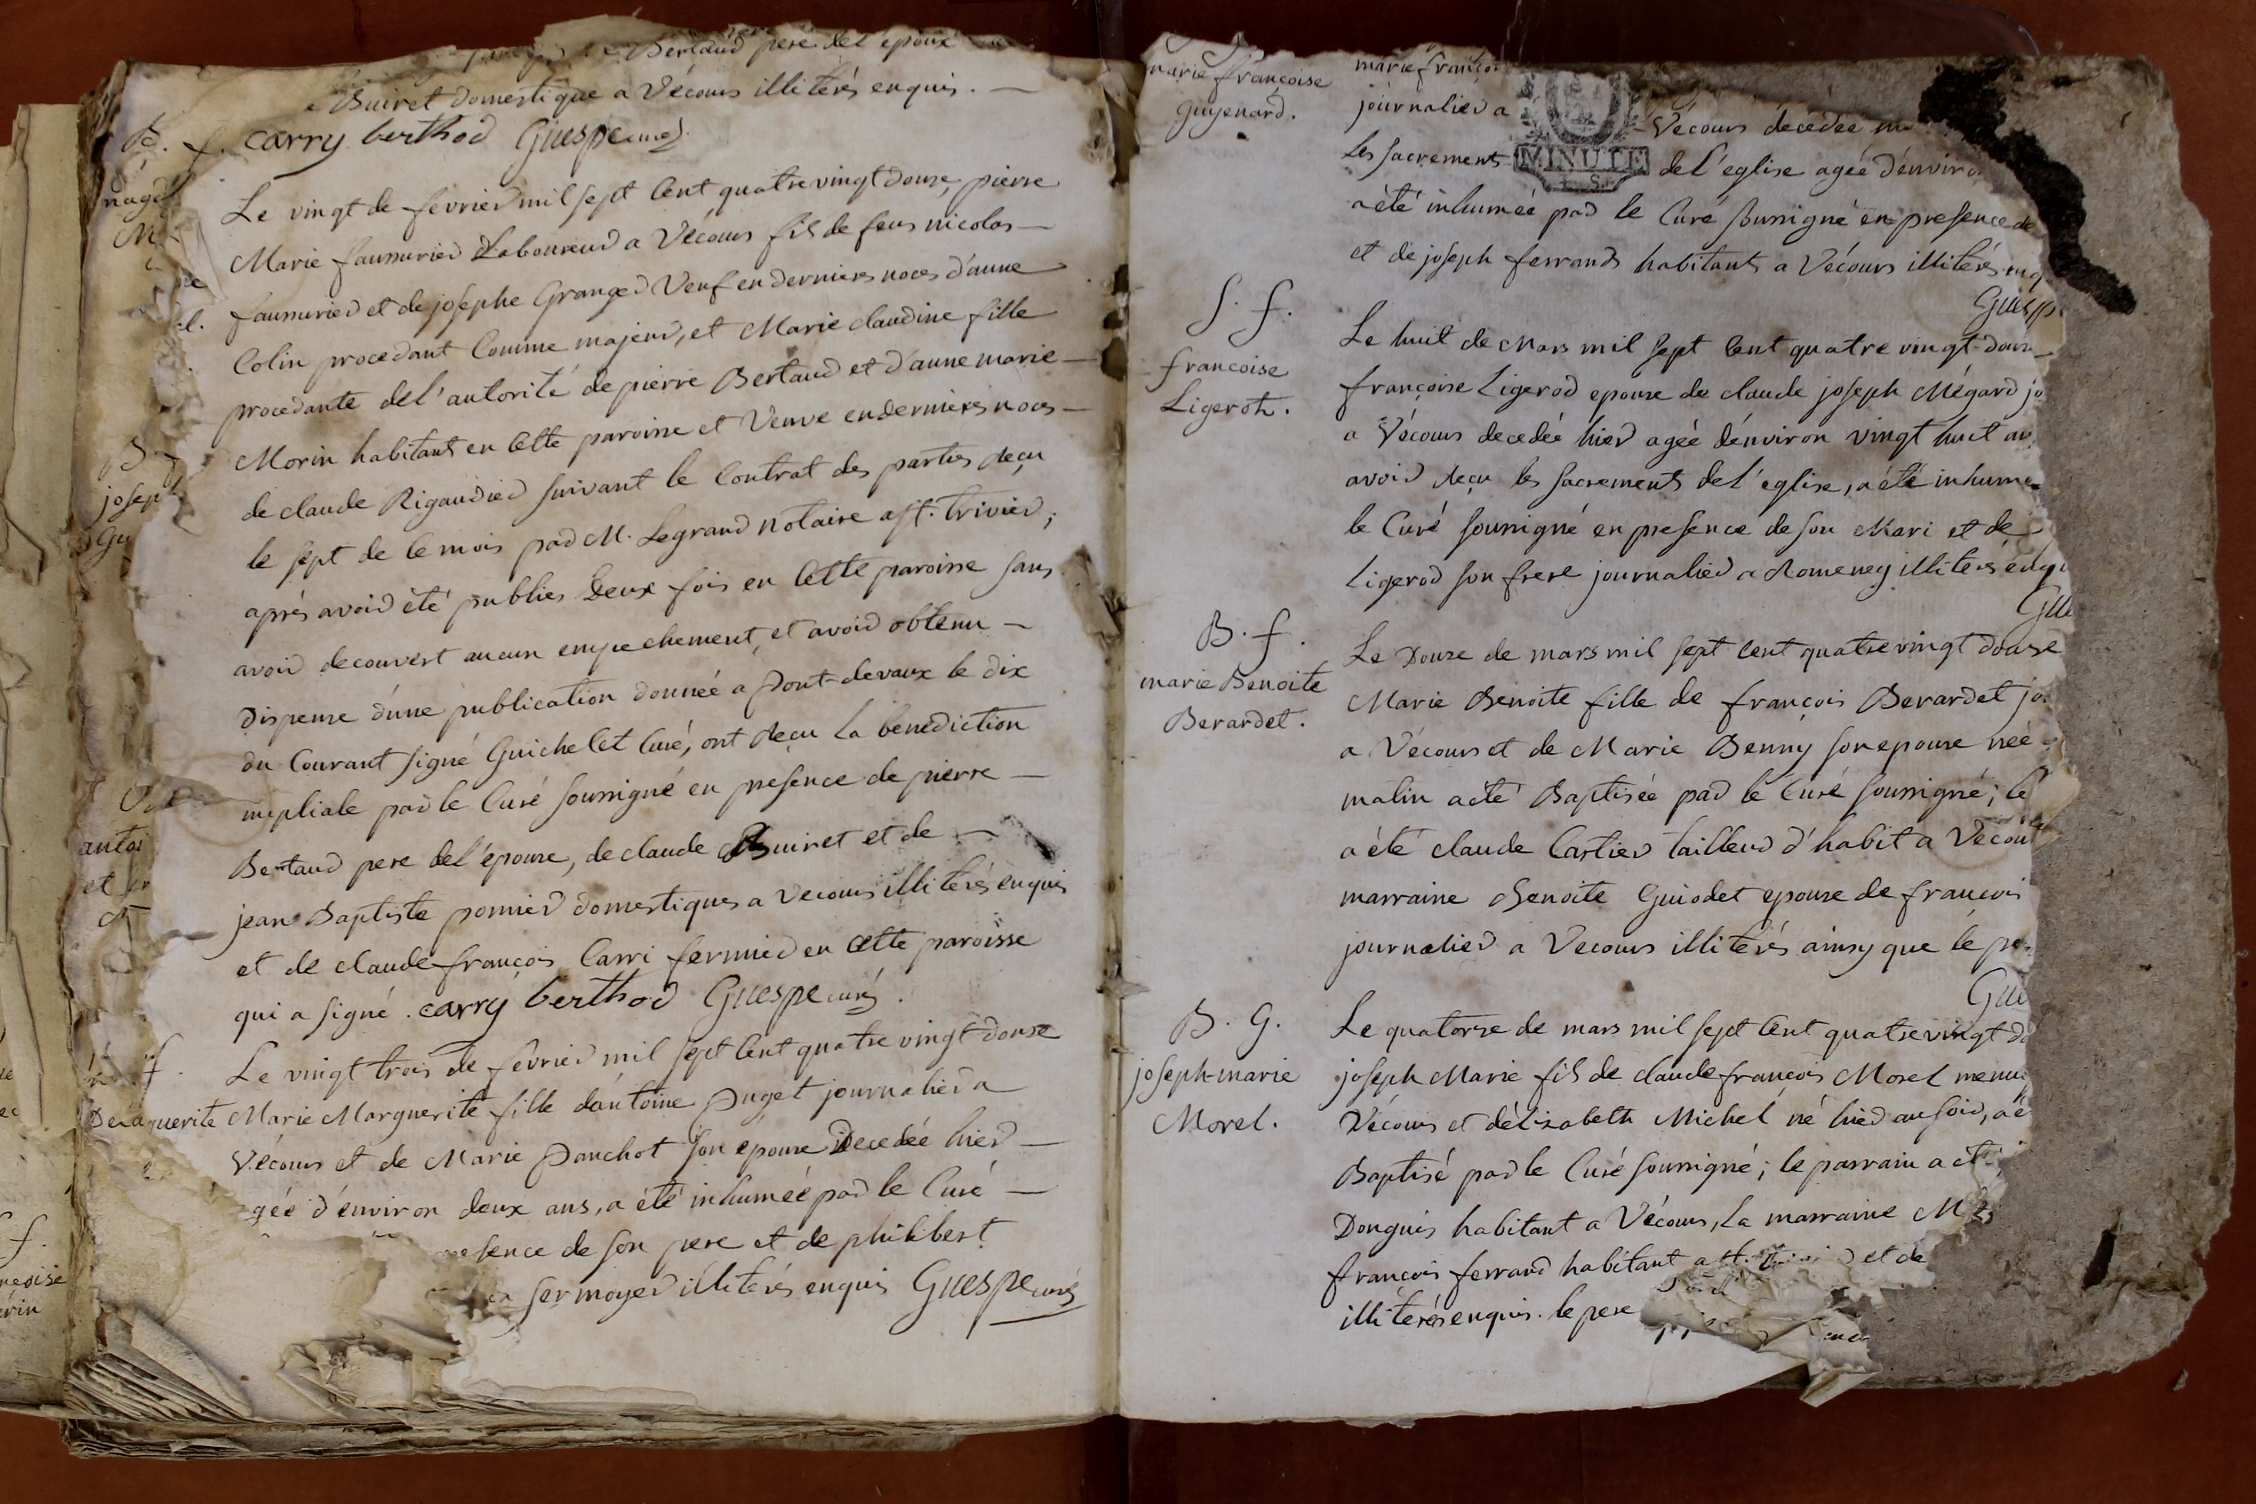 Bertaud pere del'epoux
Buiret domestique a Vécours illitérés enquis. —
carry berthod Guespe curé.
B. f.
Le vingt de fevrier mil sept cent quatre vingt douze, pierre
Marie faussurier Laboureur a Vécours fils de feus nicolas —
faussurier et de josephe Granger Veuf en dernieres noces d'anne
Colin procedant comme majeur, et Marie claudine fille
procedante del'autorité de pierre Bertaud et d'anne marie —
Morin habitants en cette paroisse et Veuve en dernieres noces —
de claude Rigaudier suivant le contrat des parties reçu
le sept de ce mois par M. Legrand notaire a st. trivier;
après avoir été publiés deux fois en cette paroisse sans
avoir decouvert aucun empechement, et avoir obtenu —
dispense d'une publication donnée a pont-devaux le dix
du courant signé Guichellet curé, ont reçu la benediction
nupliale par le Curé soussigné en presence de pierre —
Bertaud pere del'épouse, de claude Buiret et de —
jean Baptiste ponnier domestiques a vecours illitérés enquis
et de claude françois Carri fermier en cette paroisse
qui a signé. carry berthod Guespe curé.
f.
Le vingt trois de fevrier mil sept cent quatre vingt douze
Marie Marguerite fille d'antoine puget journalier a
Vécours et de Marie panchot son épouse Decedée hier —
gée d'environ deux ans, a été inhumée par le Curé —
esence de son pere et de philibert
sermoyer illitérés enquis Guespe curé
marie françoise
guyenard.
marie françoi
journalier a Vécours décedée
Les sacrements de l'eglise agée d'environ
MINUTE
a été inhumée par le Curé soussigné en presence de
et de joseph ferrand habitants a Vécours illitérés enq
Guesp
S. f.
francoise
Ligeroth.
Le huit de Mars mil sept cent quatre vingt dou
françoise Ligerod epouse de claude joseph Mégard jo
a Vécours decedée hier agée d'environ vingt huit an
avoir reçu les sacrements del'eglise, a été inhume
le Curé soussigné en presence de son Mari et de
Ligerod son frere journalier a Romeney illitérés enqu
Gue
B. f.
marie Benoite
Berardet.
Le Douze de mars mil sept cent quatre vingt douze
Marie Benoite fille de françois Berardet jo
a Vécours et de Marie Benny son epouse née
matin a été Baptisée par le Curé soussigné; le
a été claude Cartier tailleur d'habit a Vecou
marraine Benoite Guiodet epouse de francois
journalier a Vecours illitérés ainsy que le pe
Gue
B. G.
joseph-marie
Morel.
Le quatorze de mars mil sept cent quatre vingt do
joseph Marie fils de claude francois Morel menu
Vécours et d'élizabeth Michel né hier au soir, a é
Baptisé par le Curé soussigné; le parrain a ét
Donguis habitant a Vécours, la marraine M
francois ferrand habitant a st. et de
illitérés enquis. le pere